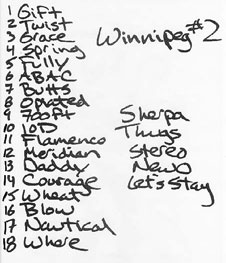 1 Gift
2 Twist
3 Grace
4 Spring
5 Fully
6 ABAC
7 Butts
8 Opiated
9 700 ft
10 IOD
11 Flamenco
12 Meridian
13 Daddy
14 Courage
15 Wheat
16 Blow
17 Nautical
18 Where
Winnipeg #2
Sherpa
Thugs
Stereo
New O
Let's Stay